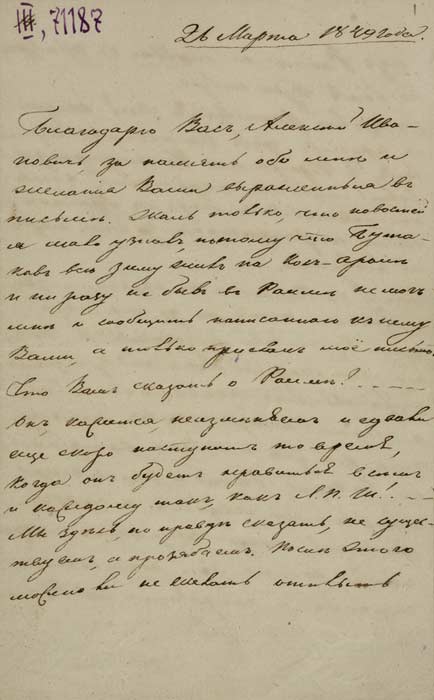 III, 71187
1
26 Марта 1849 года.
Благодарю Васъ, Алексѣй Ива-
новичъ, за память обо мнѣ и
желанія Вами выраженныя въ
письмѣ. Жаль только, что новостей
я мало узналъ, потому что Бута-
ковъ всю зиму живъ на Косъ-Аралѣ
и ни разу не бывъ въ Раимѣ не могъ
мнѣ и сообщить написаннаго къ нему
Вами, а только прислалъ моё письмо.
Что Вамъ сказать о Раимѣ?
Онъ, кажется, неизмѣненъ и едвали
еще скоро наступитъ то время,
когда онъ будетъ нравиться всѣмъ
и каждому такъ, какъ Л. П. Ш!
Мы здѣсь, по правдѣ сказать, не суще-
ствуемъ, а прозябаемъ. Послѣ этого
можно ли не желать